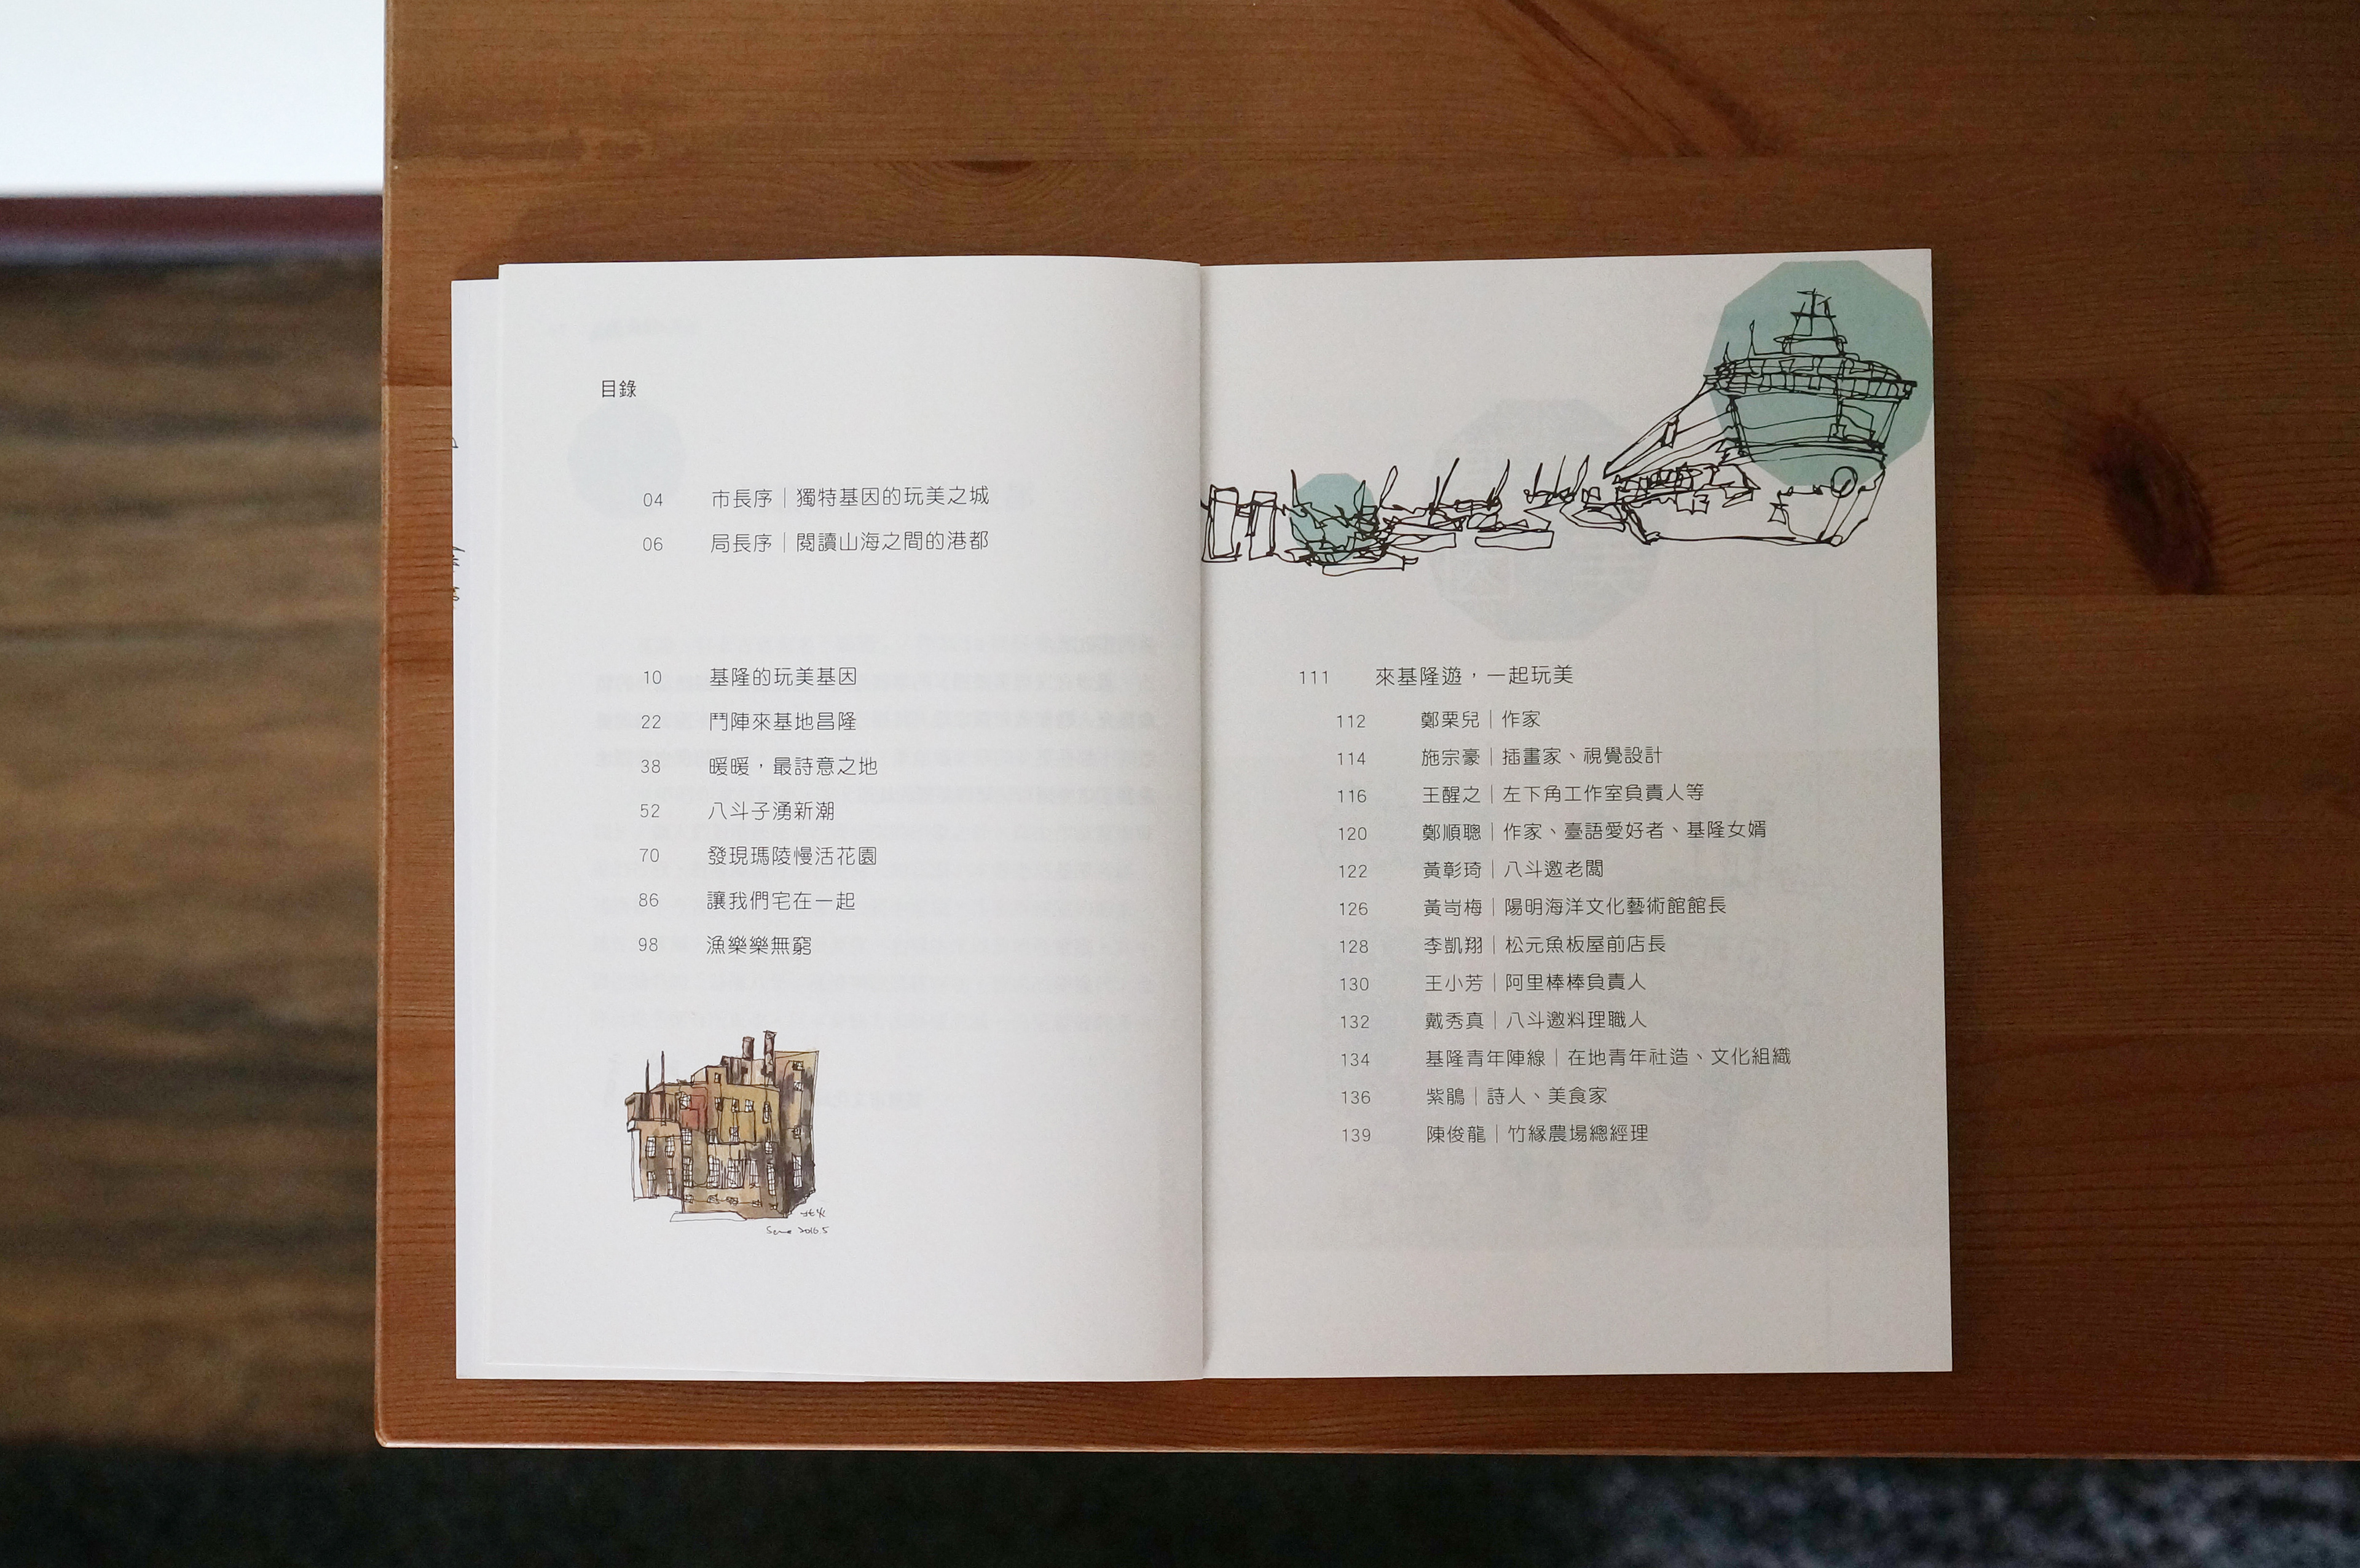 目錄
04 市長序｜獨特基因的玩美之城
06 局長序｜閱讀山海之間的港都
10 基隆的玩美基因
22 鬥陣來基地昌隆
38 暖暖，最詩意之地
52 八斗子湧新潮
70 發現瑪陵慢活花園
86 讓我們宅在一起
98 漁樂樂無窮
2016.5
111 來基隆遊，一起玩美
112 鄭栗兒｜作家
114 施宗豪｜插畫家、視覺設計
116 王醒之｜左下角工作室負責人等
120 鄭順聰｜作家、臺語愛好者、基隆女婿
122 黃彰琦｜八斗邀老闆
126 黃岢梅｜陽明海洋文化藝術館館長
128 李凱翔｜松元魚板屋前店長
130 王小芳｜阿里棒棒負責人
132 戴秀真｜八斗邀料理職人
134 基隆青年陣線｜在地青年社造、文化組織
136 紫鵑｜詩人、美食家
139 陳俊龍｜竹緣農場總經理